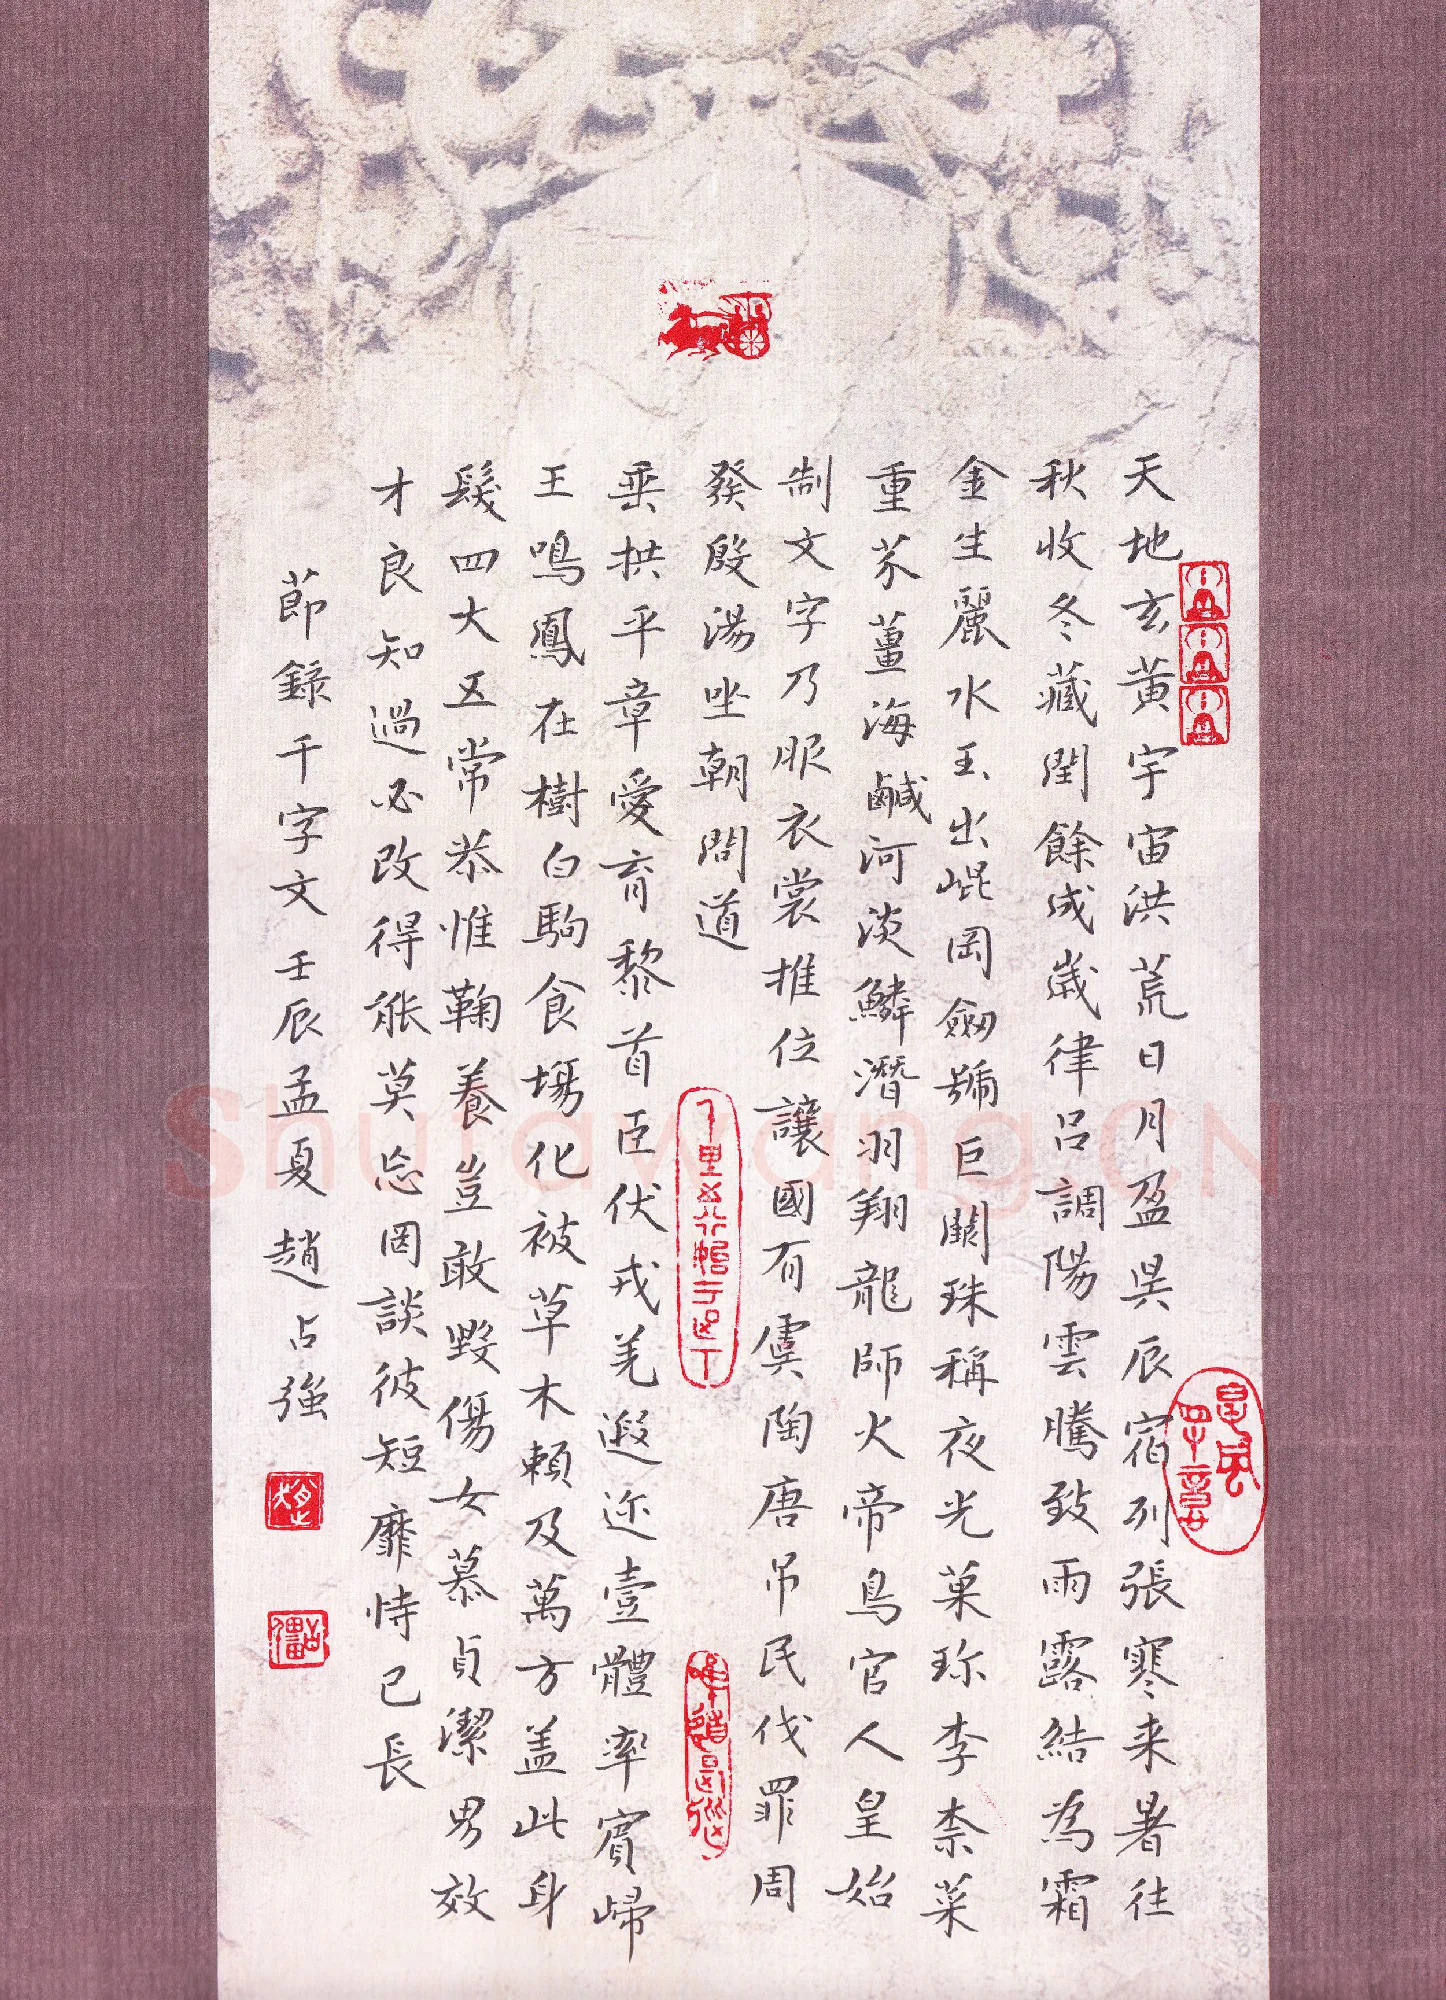 天地玄黃宇宙洪荒日月盈昃辰宿列張寒来暑往
秋收冬藏閏餘成歲律呂調陽雲騰致雨露結為霜
金生麗水玉出崐岡劔號巨闕珠稱夜光菓珎李柰菜
重芥薑海鹹河淡鱗潛羽翔龍師火帝鳥官人皇始
制文字乃服衣裳推位讓國有虞陶唐吊民伐罪周
發殷湯坐朝問道
垂拱平章愛育黎首臣伏戎羌遐迩壹體率賓歸
王鳴鳳在樹白駒食場化被草木賴及萬方盖此身
髮四大五常恭惟鞠養豈敢毀傷女慕貞潔男效
才良知過必改得能莫忘罔談彼短靡恃己長
節錄千字文壬辰孟夏趙占強
Shufawang.CN